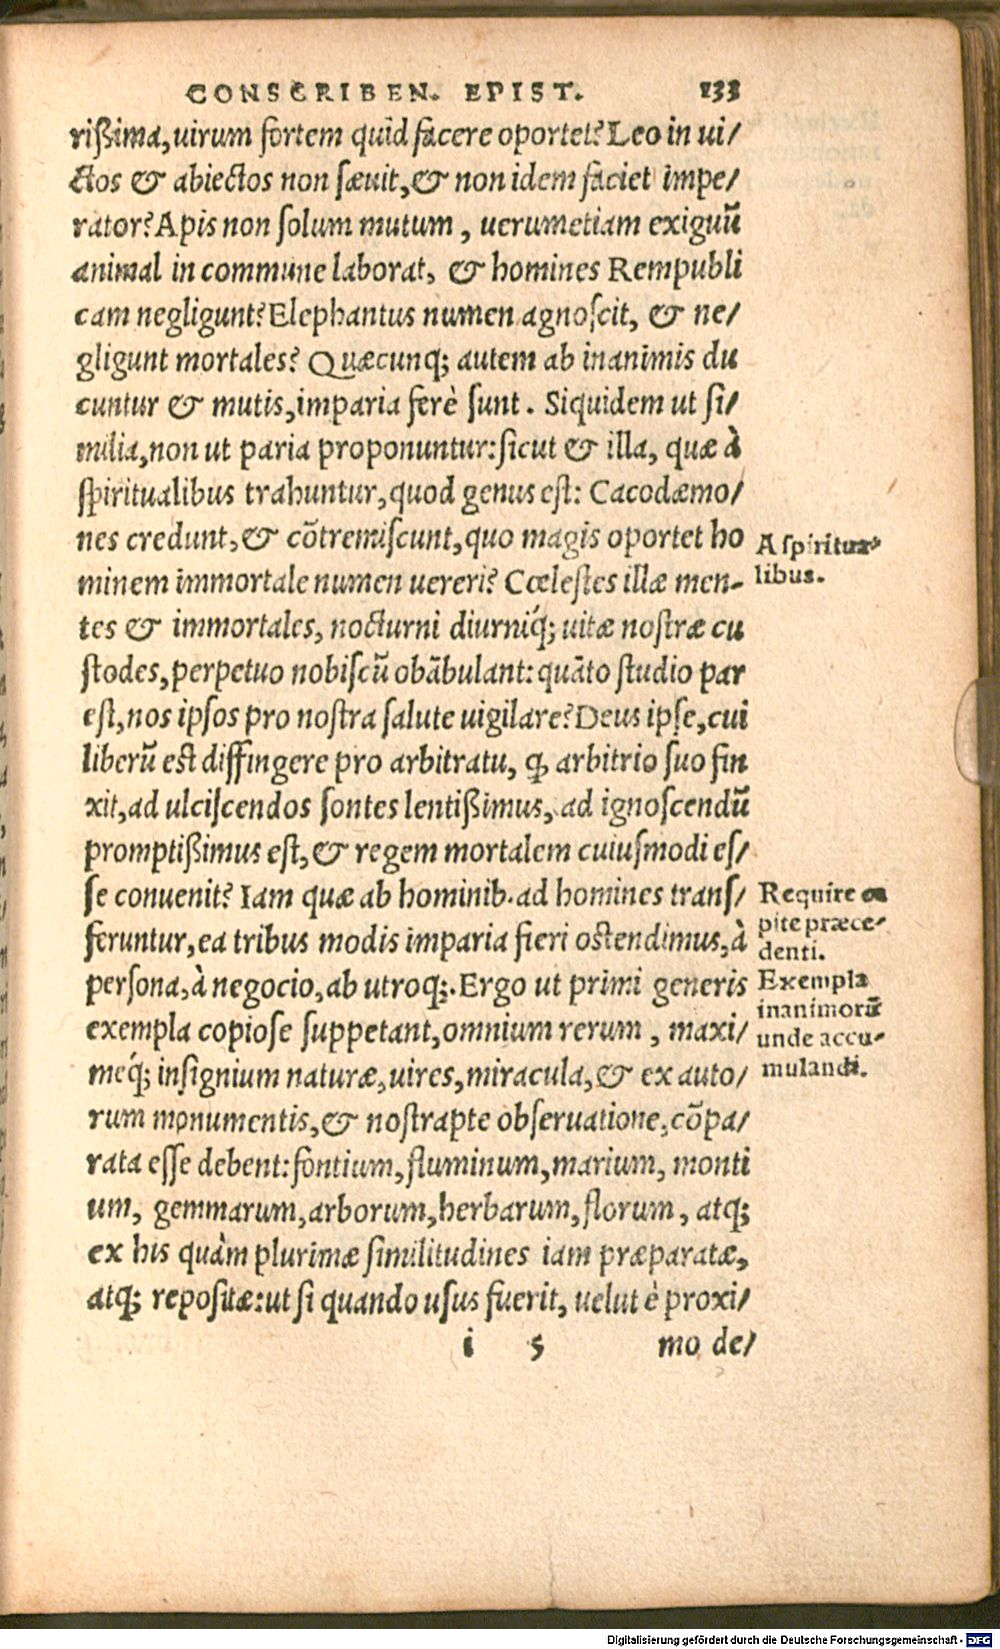 CONSCRIBEN. EPIST. 133
rißima, uirum fortem quid facere oportet? Leo in ui/
ctos & abiectos non sæuit, & non idem faciet impe/
rator? Apis non solum mutum, uerumetiam exiguũ
animal in commune laborat, & homines Rempubli
cam negligunt? Elephantus numen agnoscit, & ne/
gligunt mortales? Quæcunq; autem ab inanimis du
cuntur & mutis, imparia ferè sunt. Siquidem ut si/
milia, non ut paria proponuntur: sicut & illa, quæ à
spiritualibus trahuntur, quod genus est: Cacodæmo/
nes credunt, & cõtremiscunt, quo magis oportet ho
minem immortale numen uereri? Cœlestes illæ men-
tes & immortales, nocturni diurniq́; uitæ nostræ cu
stodes, perpetuo nobiscũ obãbulant: quãto studio par
est, nos ipsos pro nostra salute uigilare? Deus ipse, cui
liberũ est diffingere pro arbitratu, ꝙ arbitrio suo fin
xit, ad ulciscendos sontes lentißimus, ad ignoscendũ
promptißimus est, & regem mortalem cuiusmodi es/
se conuenit? Iam quæ ab hominib. ad homines trans/
feruntur, ea tribus modis imparia fieri ostendimus, à
persona, à negocio, ab utroq;. Ergo ut primi generis
exempla copiose suppetant, omnium rerum, maxi/
meq́; insignium naturæ, uires, miracula, & ex auto/
rum monumentis, & nostrapte obseruatione, cõpa/
rata esse debent: fontium, fluminum, marium, monti
um, gemmarum, arborum, herbarum, florum, atq;
ex his quàm plurimæ similitudines iam præparatæ,
atq; repositæ: ut si quando usus fuerit, uelut è proxi/
i 5 mo de/
A spiritua-
libus.
Require ca
pite præce-
denti.
Exempla
inanimorũ
unde accu-
mulandi.
Digitalisierung gefördert durch die Deutsche Forschungsgemeinschaft - DFG